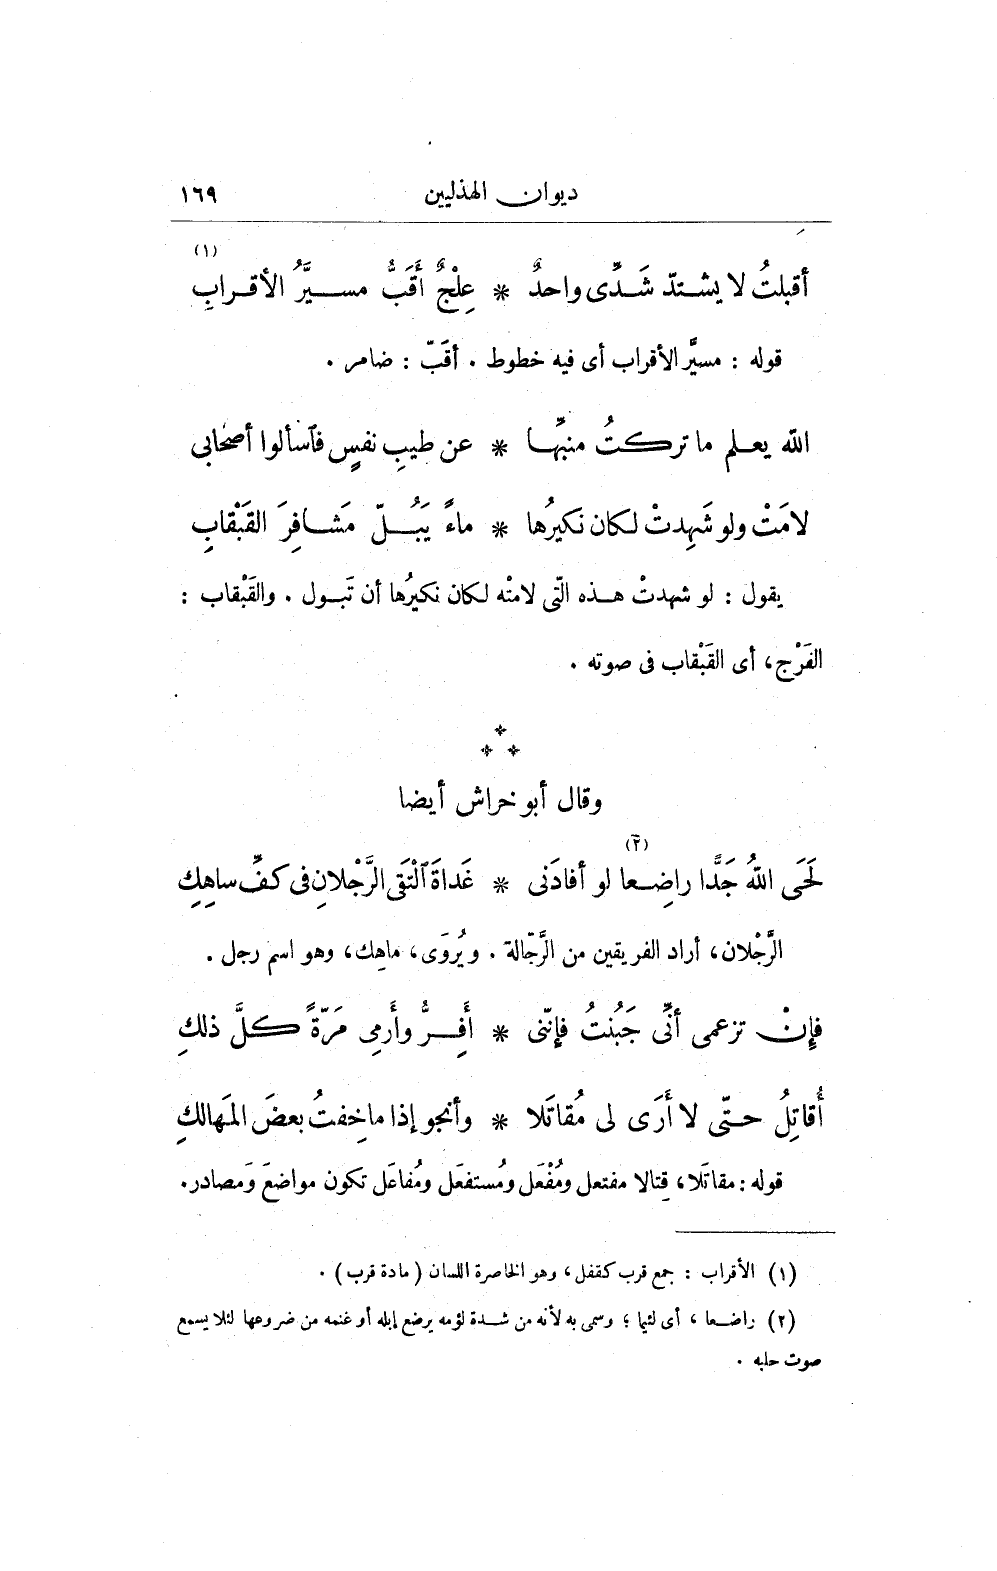 ديوان الهذليين ١٦٩
أقبلتُ لا يشتدّ شَدِّى واحدٌ * عِلْجٌ أَقَبُّ مسيَّرُ الأقرابِ (١)
قوله : مسيَّر الأقراب أى فيه خطوط . أقَبّ : ضامر .
الله يعلم ما تركتُ منبِّها * عن طيبِ نفسٍ فآسألوا أصحابى
لامَتْ ولو شَهِدتْ لكان نكيرُها * ماءً يَبُلّ مَشافِرَ القَبْقابِ
يقول : لو شهدتْ هذه الّتى لامتْه لكان نكيرُها أن تَبول . والقَبْقاب :
الفَرْج، أى القَبْقاب فى صوته .
وقال أبو خراش أيضا
لَحَى اللهُ جَدًّا راضِعا لو أفادَنى (٢) * غَداةَ ٱلْتَقَى الرَّجْلانِ فى كفِّ ساهِكِ
الرَّجْلان، أراد الفريقين من الرَّجّالة . ويُروَى، ماهِك، وهو اسم رجل .
فإنْ تزعمى أنِّى جَبُنتُ فإنّنى * أَفِرُّ وأَرمِى مَرّةً كلَّ ذلكِ
أُقاتِلُ حتّى لا أَرَى لى مُقاتَلا * وأنجو إذا ما خِفتُ بعضَ المَهالكِ
قوله : مقاتَلا، قِتالا مفتعل ومُفْعَل ومُستفعَل ومُفاعَل تكون مواضعَ ومَصادر.
(١) الأقراب : جمع قرب كقفل، وهو الخاصرة اللسان (مادة قرب) .
(٢) راضعا ، أى لئيما ؛ وسمى به لأنه من شدة لؤمه يرضع إبله أو غنمه من ضروعها لئلا يسمع
صوت حلبه .